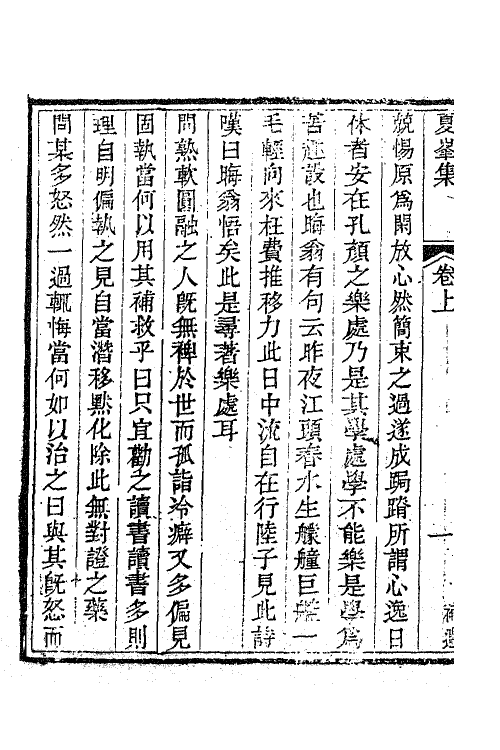 夏峯集 卷上 一 補遺
兢惕原爲閑放心然簡束之過遂成跼蹐所謂心逸日
休者安在孔顏之樂處乃是其學處學不能樂是學爲
苦趣設也晦翁有句云昨夜江頭春水生艨艟巨艦一
毛輕向來枉費推移力此日中流自在行陸子見此詩
嘆曰晦翁悟矣此是尋著樂處耳
問熟軟圓融之人旣無裨於世而孤詣冷癖又多偏見
固執當何以用其補救乎曰只宜勸之讀書讀書多則
理自明偏執之見自當潛移默化除此無對證之藥
問某多怒然一過輒悔當何如以治之曰與其旣怒而